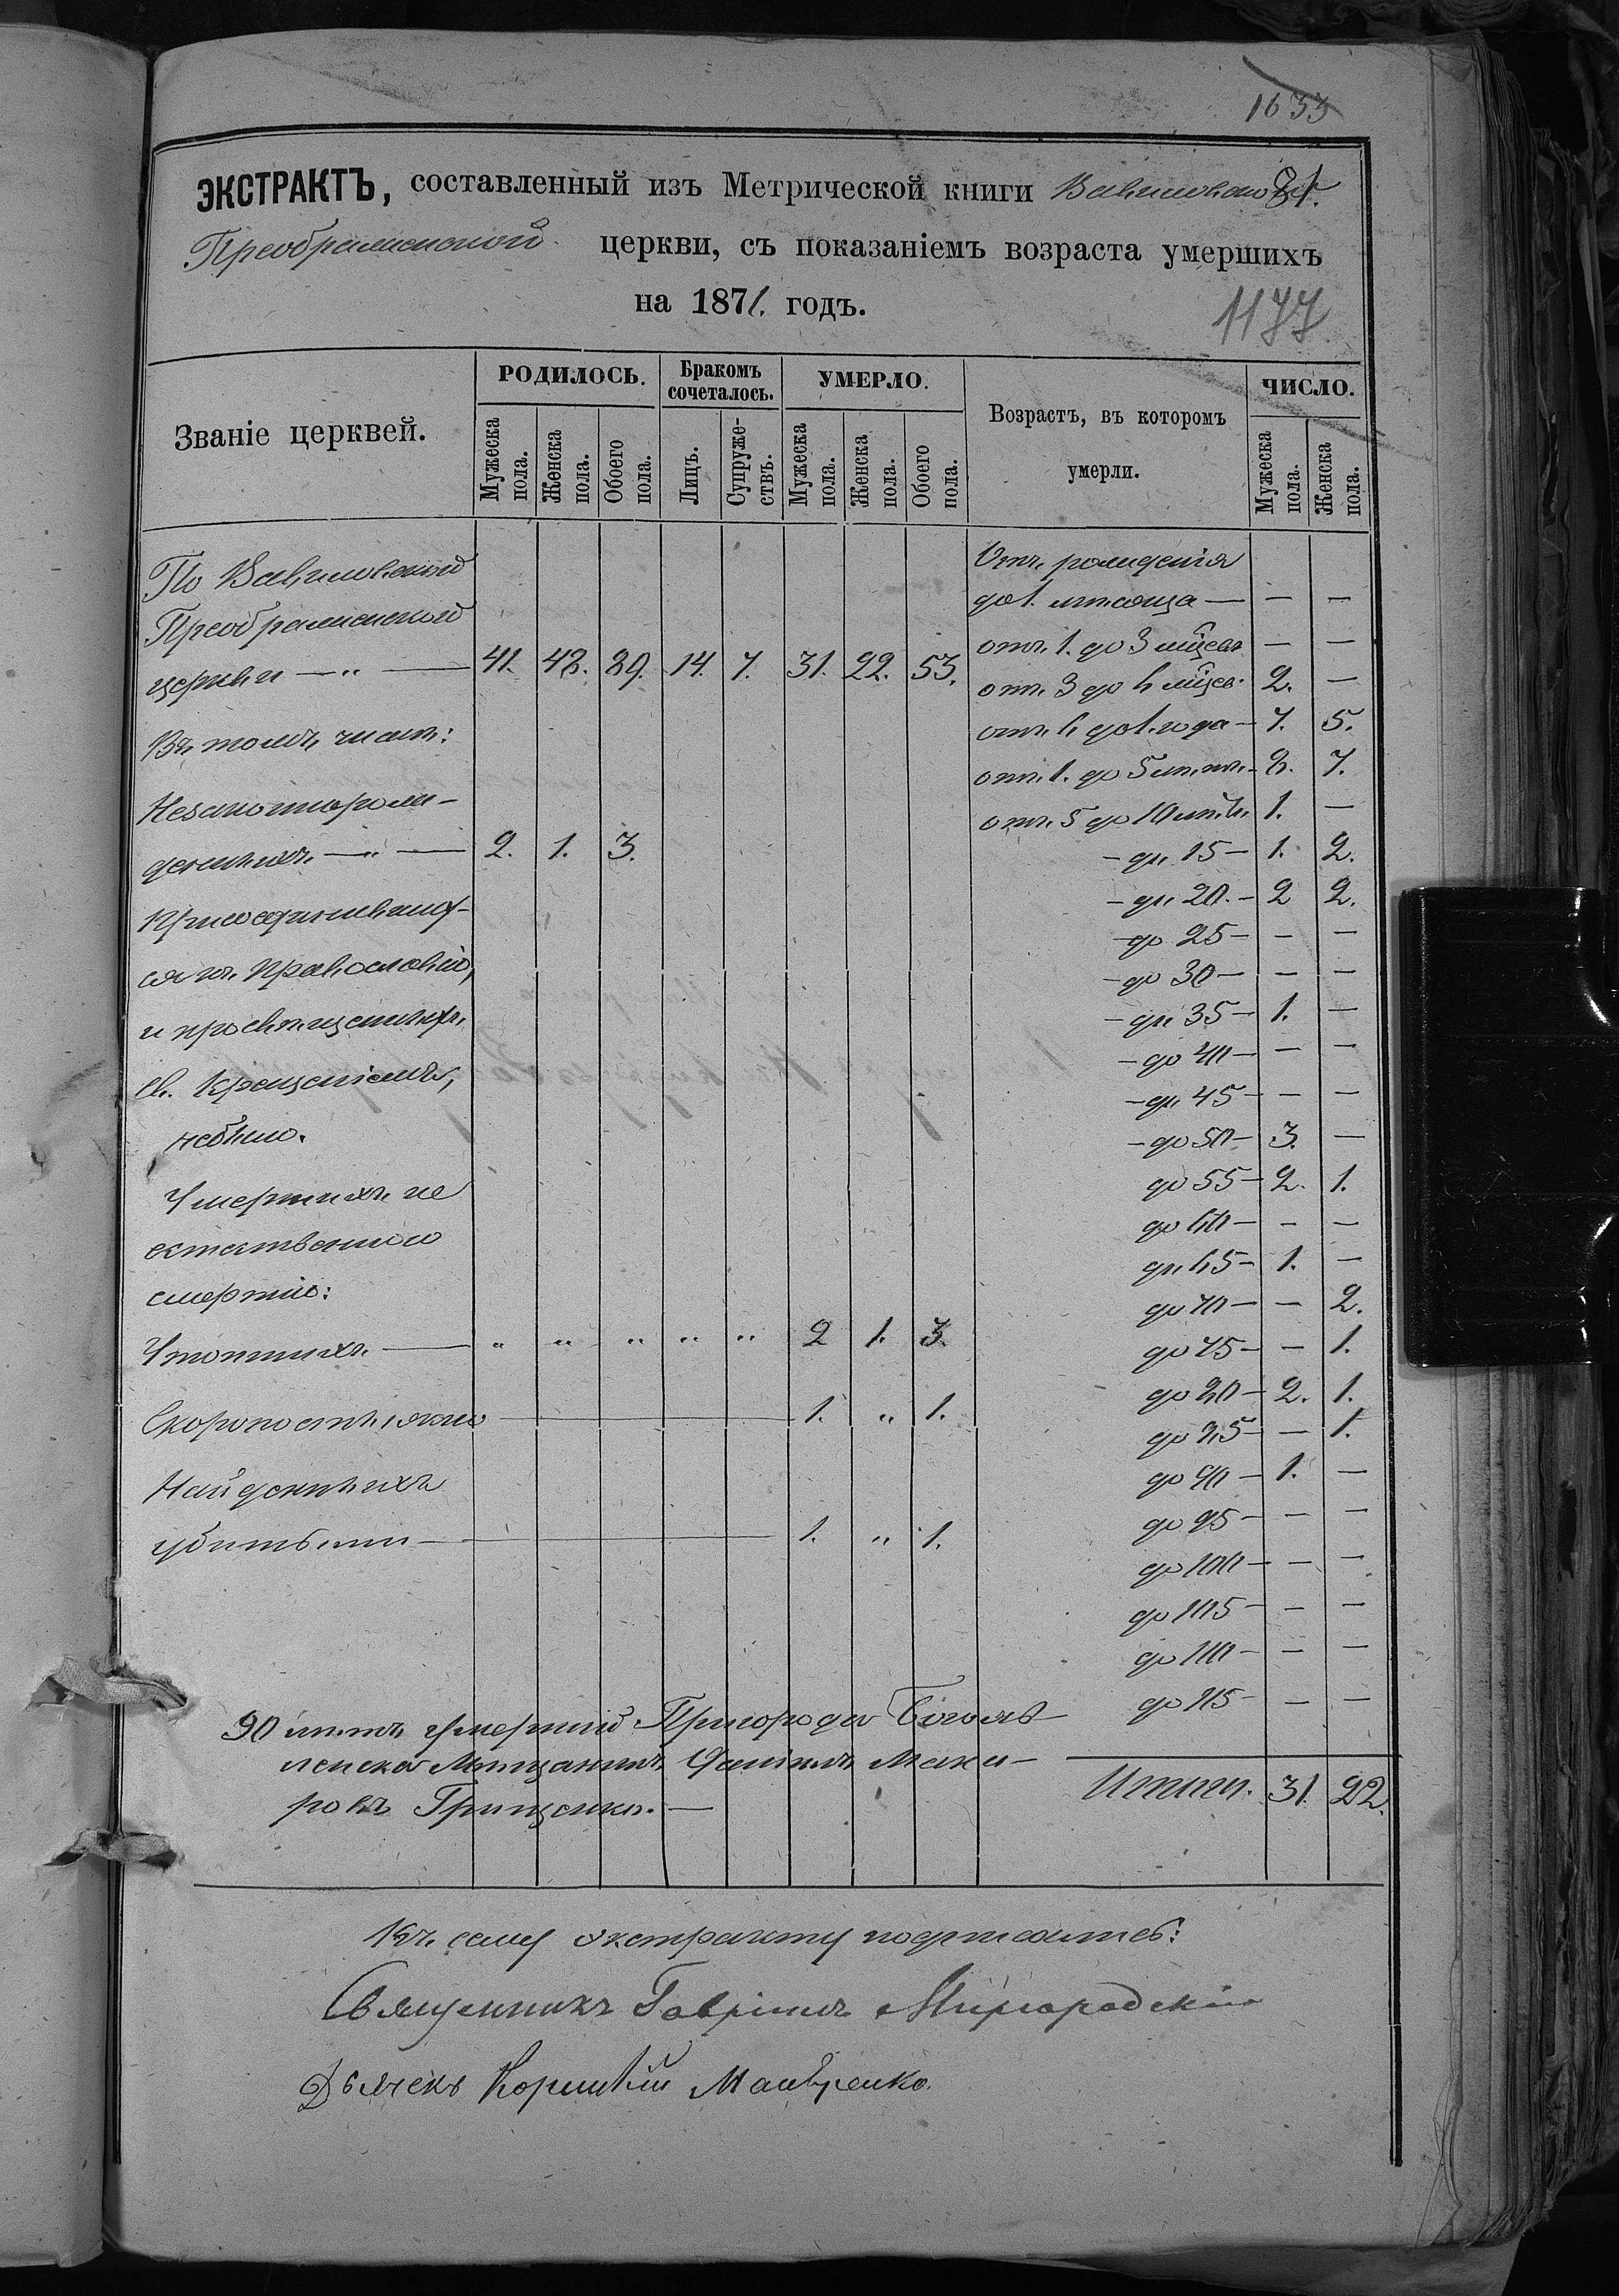 1633
ЭКСТРАКТЪ, составленный изъ Метрической книги Вавиловской
Преображенской церкви, съ показаніемъ возраста умершихъ
на 1871. годъ.
1177
Званіе церквей. РОДИЛОСЬ. Бракомъ сочеталось. УМЕРЛО. Возрастъ, въ которомъ умерли. ЧИСЛО.
Мужеска пола. Женска пола. Обоего пола. Лицъ. Супруже-ствъ. Мужеска пола. Женска пола. Обоего пола. Мужеска пола. Женска пола.
По Вавиловской
Преображенской
церкви —„— 41. 48. 89. 14. 7. 31. 22. 53.
Въ томъ числѣ:
Незаконнорож-
денныхъ —„— 2. 1. 3.
Присоединивших-
ся къ Православію,
и просвѣщенныхъ
Св. Крещеніемъ,
небыло.
Умершихъ не
естественною
смертію:
Утопшихъ — „ „ „ „ „ 2 1. 3.
Скоропостижно — 1. „ 1.
Найденныхъ
убитыми — 1. „ 1.
Отъ рожденія
до 1. мѣсяца — — —
отъ 1. до 3 мѣсев — —
отъ 3 до 6 мѣсев. 2. —
отъ 6 до 1. года — 7. 5.
отъ 1. до 5 лѣтъ — 8. 7.
отъ 5 до 10 лѣтъ. 1. —
— до 15 — 1. 2.
— до 20. — 2 2.
— до 25 — — —
— до 30 — — —
— до 35 — 1. —
— до 40 — — —
— до 45 — — —
— до 50 — 3. —
до 55 — 2. 1.
до 60 — — —
до 65 — 1. —
до 70 — — 2.
до 75 — — 1.
до 80 — 2. 1.
до 85 — — 1.
до 90 — 1. —
до 95 — — —
до 100 — — —
до 105 — — —
до 110 — — —
до 115 — — —
Итого. 31. 22.
90 лѣтъ умершій Пригорода Богояв-
ленска Мѣщанинъ Даніилъ Мака-
ровъ Грищенко. —
Къ сему экстракту подписались:
Священникъ Гавріилъ Миргородскій
Дьячекъ Корнилій